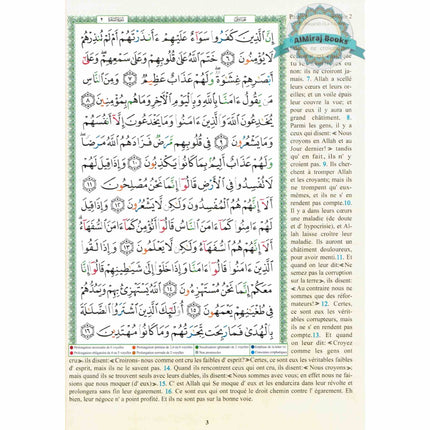 AlMiraj Books
إِنَّ ٱلَّذِينَ كَفَرُوا۟ سَوَآءٌ عَلَيْهِمْ ءَأَنذَرْتَهُمْ أَمْ لَمْ تُنذِرْهُمْ
لَا يُؤْمِنُونَ ٦ خَتَمَ ٱللَّهُ عَلَىٰ قُلُوبِهِمْ وَعَلَىٰ سَمْعِهِمْ وَعَلَىٰٓ
أَبْصَٰرِهِمْ غِشَٰوَةٌ وَلَهُمْ عَذَابٌ عَظِيمٌ ٧ وَمِنَ ٱلنَّاسِ
مَن يَقُولُ ءَامَنَّا بِٱللَّهِ وَبِٱلْيَوْمِ ٱلْءَاخِرِ وَمَا هُم بِمُؤْمِنِينَ ٨
يُخَٰدِعُونَ ٱللَّهَ وَٱلَّذِينَ ءَامَنُوا۟ وَمَا يَخْدَعُونَ إِلَّآ أَنفُسَهُمْ
وَمَا يَشْعُرُونَ ٩ فِى قُلُوبِهِم مَّرَضٌ فَزَادَهُمُ ٱللَّهُ مَرَضًا
وَلَهُمْ عَذَابٌ أَلِيمٌۢ بِمَا كَانُوا۟ يَكْذِبُونَ ١٠ وَإِذَا قِيلَ لَهُمْ
لَا تُفْسِدُوا۟ فِى ٱلْأَرْضِ قَالُوٓا۟ إِنَّمَا نَحْنُ مُصْلِحُونَ ١١
أَلَآ إِنَّهُمْ هُمُ ٱلْمُفْسِدُونَ وَلَٰكِن لَّا يَشْعُرُونَ ١٢ وَإِذَا قِيلَ
لَهُمْ ءَامِنُوا۟ كَمَآ ءَامَنَ ٱلنَّاسُ قَالُوٓا۟ أَنُؤْمِنُ كَمَآ ءَامَنَ ٱلسُّفَهَآءُ
أَلَآ إِنَّهُمْ هُمُ ٱلسُّفَهَآءُ وَلَٰكِن لَّا يَعْلَمُونَ ١٣ وَإِذَا لَقُوا۟
ٱلَّذِينَ ءَامَنُوا۟ قَالُوٓا۟ ءَامَنَّا وَإِذَا خَلَوْا۟ إِلَىٰ شَيَٰطِينِهِمْ قَالُوٓا۟
إِنَّا مَعَكُمْ إِنَّمَا نَحْنُ مُسْتَهْزِءُونَ ١٤ ٱللَّهُ يَسْتَهْزِئُ بِهِمْ وَيَمُدُّهُمْ
فِى طُغْيَٰنِهِمْ يَعْمَهُونَ ١٥ أُو۟لَٰٓئِكَ ٱلَّذِينَ ٱشْتَرَوُا۟ ٱلضَّلَٰلَةَ
بِٱلْهُدَىٰ فَمَا رَبِحَت تِّجَٰرَتُهُمْ وَمَا كَانُوا۟ مُهْتَدِينَ ١٦
non: ils ne croiront ja-
mais. 7. Allah a scellé
leurs cœurs et leurs or-
eilles; et un voile épais
leur couvre la vue; et
pour eux il y aura un
grand châtiment. 8.
Parmi les gens, il y a
ceux qui disent: «Nous
croyons en Allah et au
Jour dernier!» tandis
qu' en fait, ils n' y
croient pas. 9. Ils cher-
chent à tromper Allah
et les croyants; mais ils
ne trompent qu' eux-
mêmes, et ils ne s' en
rendent pas compte.10.
Il y a dans leurs cœurs
une maladie (de doute
et d' hypocrisie), et Al-
lah laisse croître leur
maladie. Ils auront un
châtiment douloureux,
pour avoir menti.11. Et
quand on leur dit:«Ne
semez pas la corruption
sur la terre», ils disent:
«Au contraire nous ne
sommes que des réfor-
mateurs!» 12. Certes,
ce sont eux les véri-
tables corrupteurs, mais
ils ne s' en rendent
compte.13. Et quand
on leur dit: «Croyez
comme les gens ont
cru», ils disent:«Croirons- nous comme ont cru les faibles d' esprit?»Certes, ce sont eux les véritables faibles
d' esprit, mais ils ne le savent pas. 14. Quand ils rencontrent ceux qui ont cru, ils disent:«Nous croyons»;
mais quand ils se trouvent seuls avec leurs diables, ils disent:«Nous sommes avec vous; en effet nous ne fai-
sions que nous moquer (d' eux)». 15. C' est Allah qui Se moque d' eux et les endurcira dans leur révolte et
prolongera sans fin leur égarement. 16. Ce sont eux qui ont troqué le droit chemin contre l' égarement. Eh
bien, leur négoce n' a point profité. Et ils ne sont pas sur la bonne voie.
3